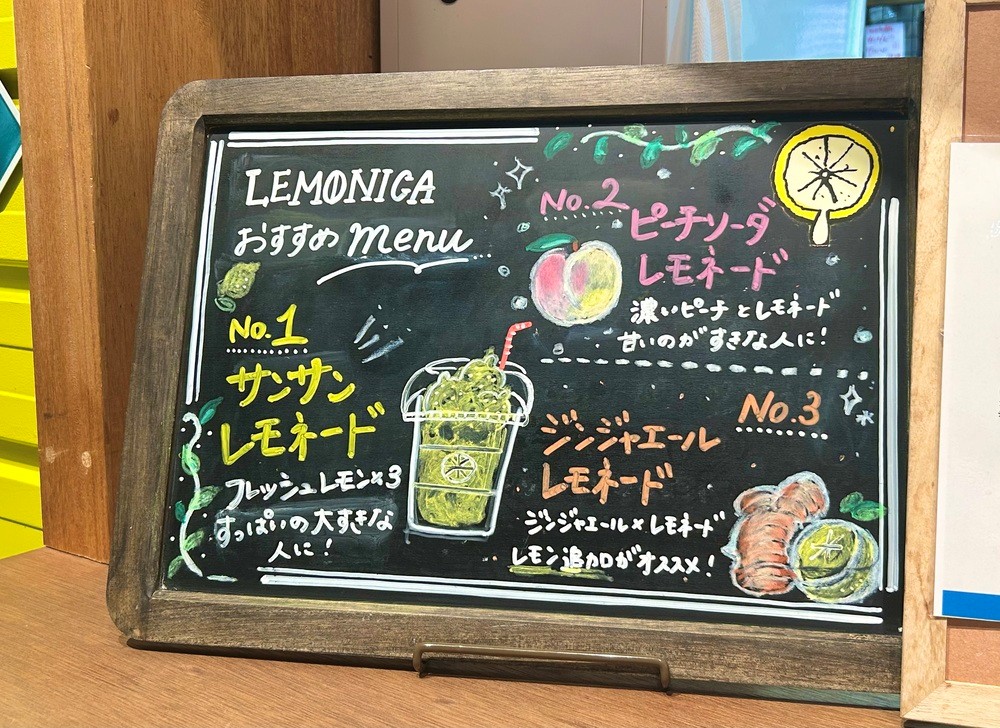 LEMONICA
おすすめ menu
No.1
サンサン
レモネード
フレッシュレモン×3
すっぱいの大すきな
人に!
No.2
ピーチソーダ
レモネード
濃いピーチとレモネード
甘いのがすきな人に!
No.3
ジンジャエール
レモネード
ジンジャエール×レモネード
レモン追加がオススメ!